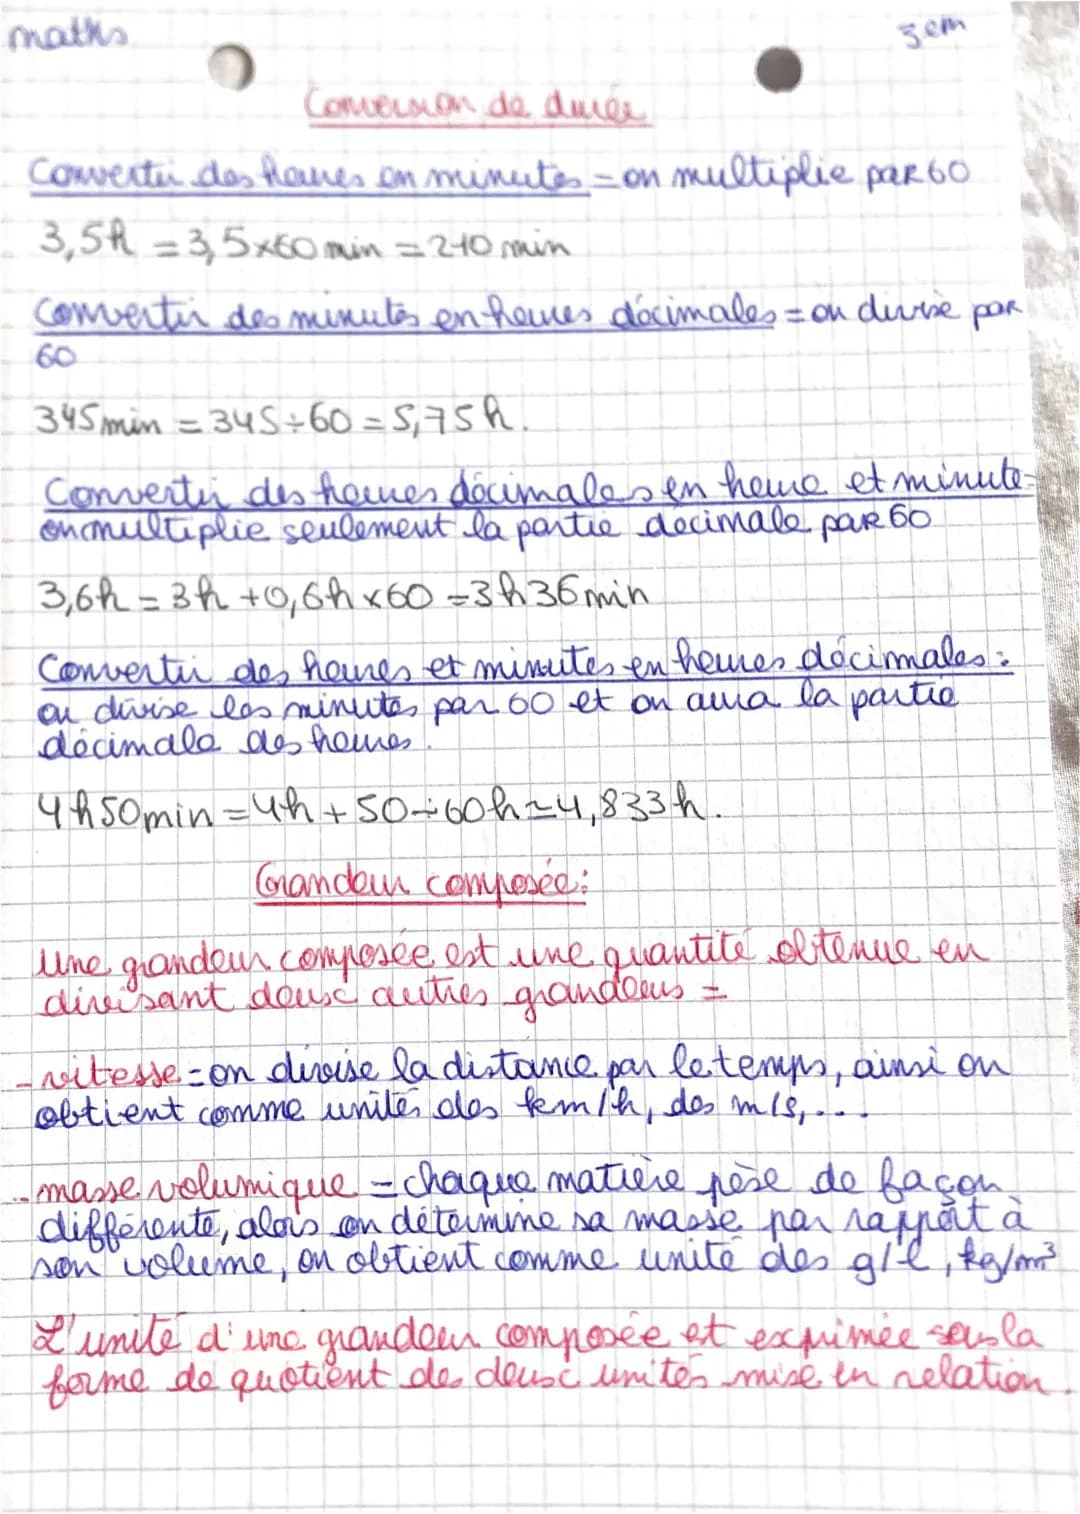 maths
3em
Conversion de durée
Convertir des heures en minutes = on multiplie par 60
3,5h = 3,5×60 min = 210 min
Convertir des minutes en heures décimales = on divise par
60
345 min = 345÷60 = 5,75 h.
Convertir des heures décimales en heure et minute =
on multiplie seulement la partie décimale par 60
3,6h = 3h + 0,6h × 60 = 3h36min
Convertir des heures et minutes en heures décimales :
on divise les minutes par 60 et on aura la partie
décimale des heures.
4h50min = 4h + 50÷60h ≃ 4,833h.
Grandeur composée :
Une grandeur composée est une quantité obtenue en
divisant deux autres grandeurs =
- vitesse = on divise la distance par le temps, ainsi on
obtient comme unités des km/h, des m/s, ....
- masse volumique = chaque matière pèse de façon
différente, alors on détermine sa masse par rapport à
son volume, on obtient comme unité des g/l, kg/m³
L'unité d'une grandeur composée et exprimée sous la
forme de quotient des deux unités mise en relation.